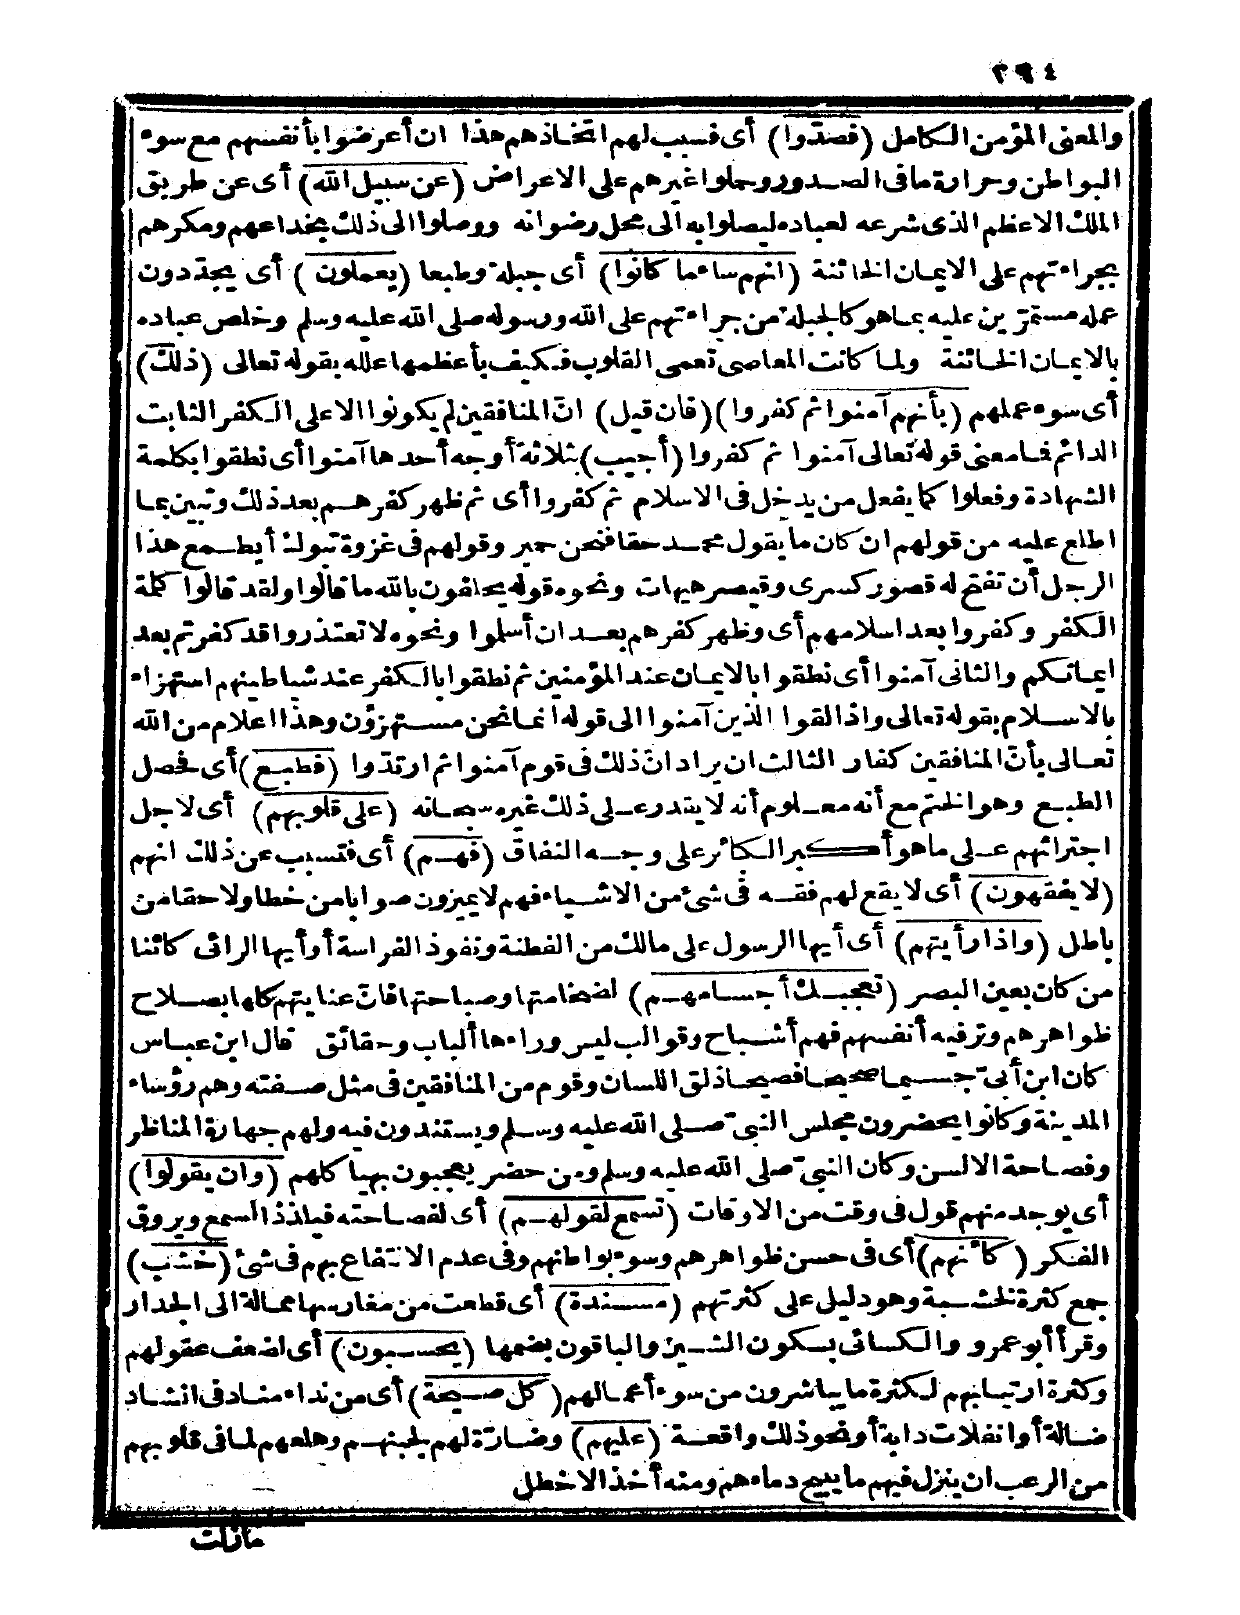 ٢٩٤
والمعنى المؤمن الكامل (فصدّوا) أى فسبب لهم اتخاذهم هذا ان أعرضوا بأنفسهم مع سوء
البواطن وحرارة ما فى الصدور وحملوا غيرهم على الاعراض (عن سبيل الله) أى عن طريق
الملك الاعظم الذى شرعه لعباده ليصلوا به الى محل رضوانه ووصلوا الى ذلك بخداعهم ومكرهم
بجراءتهم على الايمان الخائنة (انهم ساء ما كانوا) أى جبلة وطبعا (يعملون) أى يجدّدون
عمله مستمرّين عليه بما هو كالجبلة من جراءتهم على الله ورسوله صلى الله عليه وسلم وخلص عباده
بالايمان الخائنة ولما كانت المعاصى تعمى القلوب فكيف بأعظمها علله بقوله تعالى (ذلك)
أى سوء عملهم (بأنهم آمنوا ثم كفروا) (فان قيل) انّ المنافقين لم يكونوا الا على الكفر الثابت
الدائم فما معنى قوله تعالى آمنوا ثم كفروا (أجيب) بثلاثة أوجه أحدها آمنوا أى نطقوا بكلمة
الشهادة وفعلوا كما يفعل من يدخل فى الاسلام ثم كفروا أى ثم ظهر كفرهم بعد ذلك وتبين بما
اطلع عليه من قولهم ان كان ما يقول محمد حقا فنحن حمير وقولهم فى غزوة تبوك أيطمع هذا
الرجل أن تفتح له قصور كسرى وقيصر هيهات ونحوه قوله يحلفون بالله ما قالوا ولقد قالوا كلمة
الكفر وكفروا بعد اسلامهم أى وظهر كفرهم بعد ان أسلموا ونحوه لا تعتذروا قد كفرتم بعد
ايمانكم والثانى آمنوا أى نطقوا بالايمان عند المؤمنين ثم نطقوا بالكفر عند شياطينهم استهزاء
بالاسلام بقوله تعالى واذا لقوا الذين آمنوا الى قوله انما نحن مستهزؤن وهذا اعلام من الله
تعالى بأنّ المنافقين كفار الثالث ان يراد انّ ذلك فى قوم آمنوا ثم ارتدّوا (فطبع) أى فحصل
الطبع وهو الختم مع أنه معلوم أنه لا يقدر على ذلك غيره سبحانه (على قلوبهم) أى لاجل
اجترائهم على ما هو أكبر الكائر على وجه النفاق (فهم) أى فتسبب عن ذلك انهم
(لا يفقهون) أى لا يقع لهم فقه فى شئ من الاشياء فهم لا يميزون صوابا من خطا ولا حقا من
باطل (واذا رأيتهم) أى أيها الرسول على مالك من الفطنة ونفوذ الفراسة أو أيها الرائى كائنا
من كان بعين البصر (تعجبك أجسامهم) لضخامتها وصباحتها فانّ عنايتهم كلها بصلاح
ظواهرهم وترفيه أنفسهم فهم أشباح وقوالب ليس وراءها ألباب وحقائق قال ابن عباس
كان ابن أبىّ جسيما صحيحا فصيحا ذلق اللسان وقوم من المنافقين فى مثل صفته وهم رؤساء
المدينة وكانوا يحضرون مجلس النبىّ صلى الله عليه وسلم ويستندون فيه ولهم جهارة المناظر
وفصاحة الالسن وكان النبىّ صلى الله عليه وسلم ومن حضر يعجبون بهيا كلهم (وان يقولوا)
أى يوجد منهم قول فى وقت من الاوقات (تسمع لقولهم) أى لفصاحته فيلذذ السمع ويروق
الفكر (كأنهم) أى فى حسن ظواهرهم وسوء بواطنهم وفى عدم الانتفاع بهم فى شئ (خشب)
جمع كثرة لخشبة وهو دليل على كثرتهم (مسندة) أى قطعت من مغارسها ممالة الى الجدار
وقرأ أبو عمرو والكسائى بسكون الشين والباقون بضمها (يحسبون) أى لضعف عقولهم
وكثرة ارتيابهم لكثرة ما يباشرون من سوء أعمالهم (كل صيحة) أى من نداء مناد فى انشاد
ضالة أو انفلات دابة أو نحو ذلك واقعة (عليهم) وضارّة لهم لجبنهم وهلعهم لما فى قلوبهم
من الرعب ان ينزل فيهم ما يبيح دماءهم ومنه أخذ الاخطل
مازلت